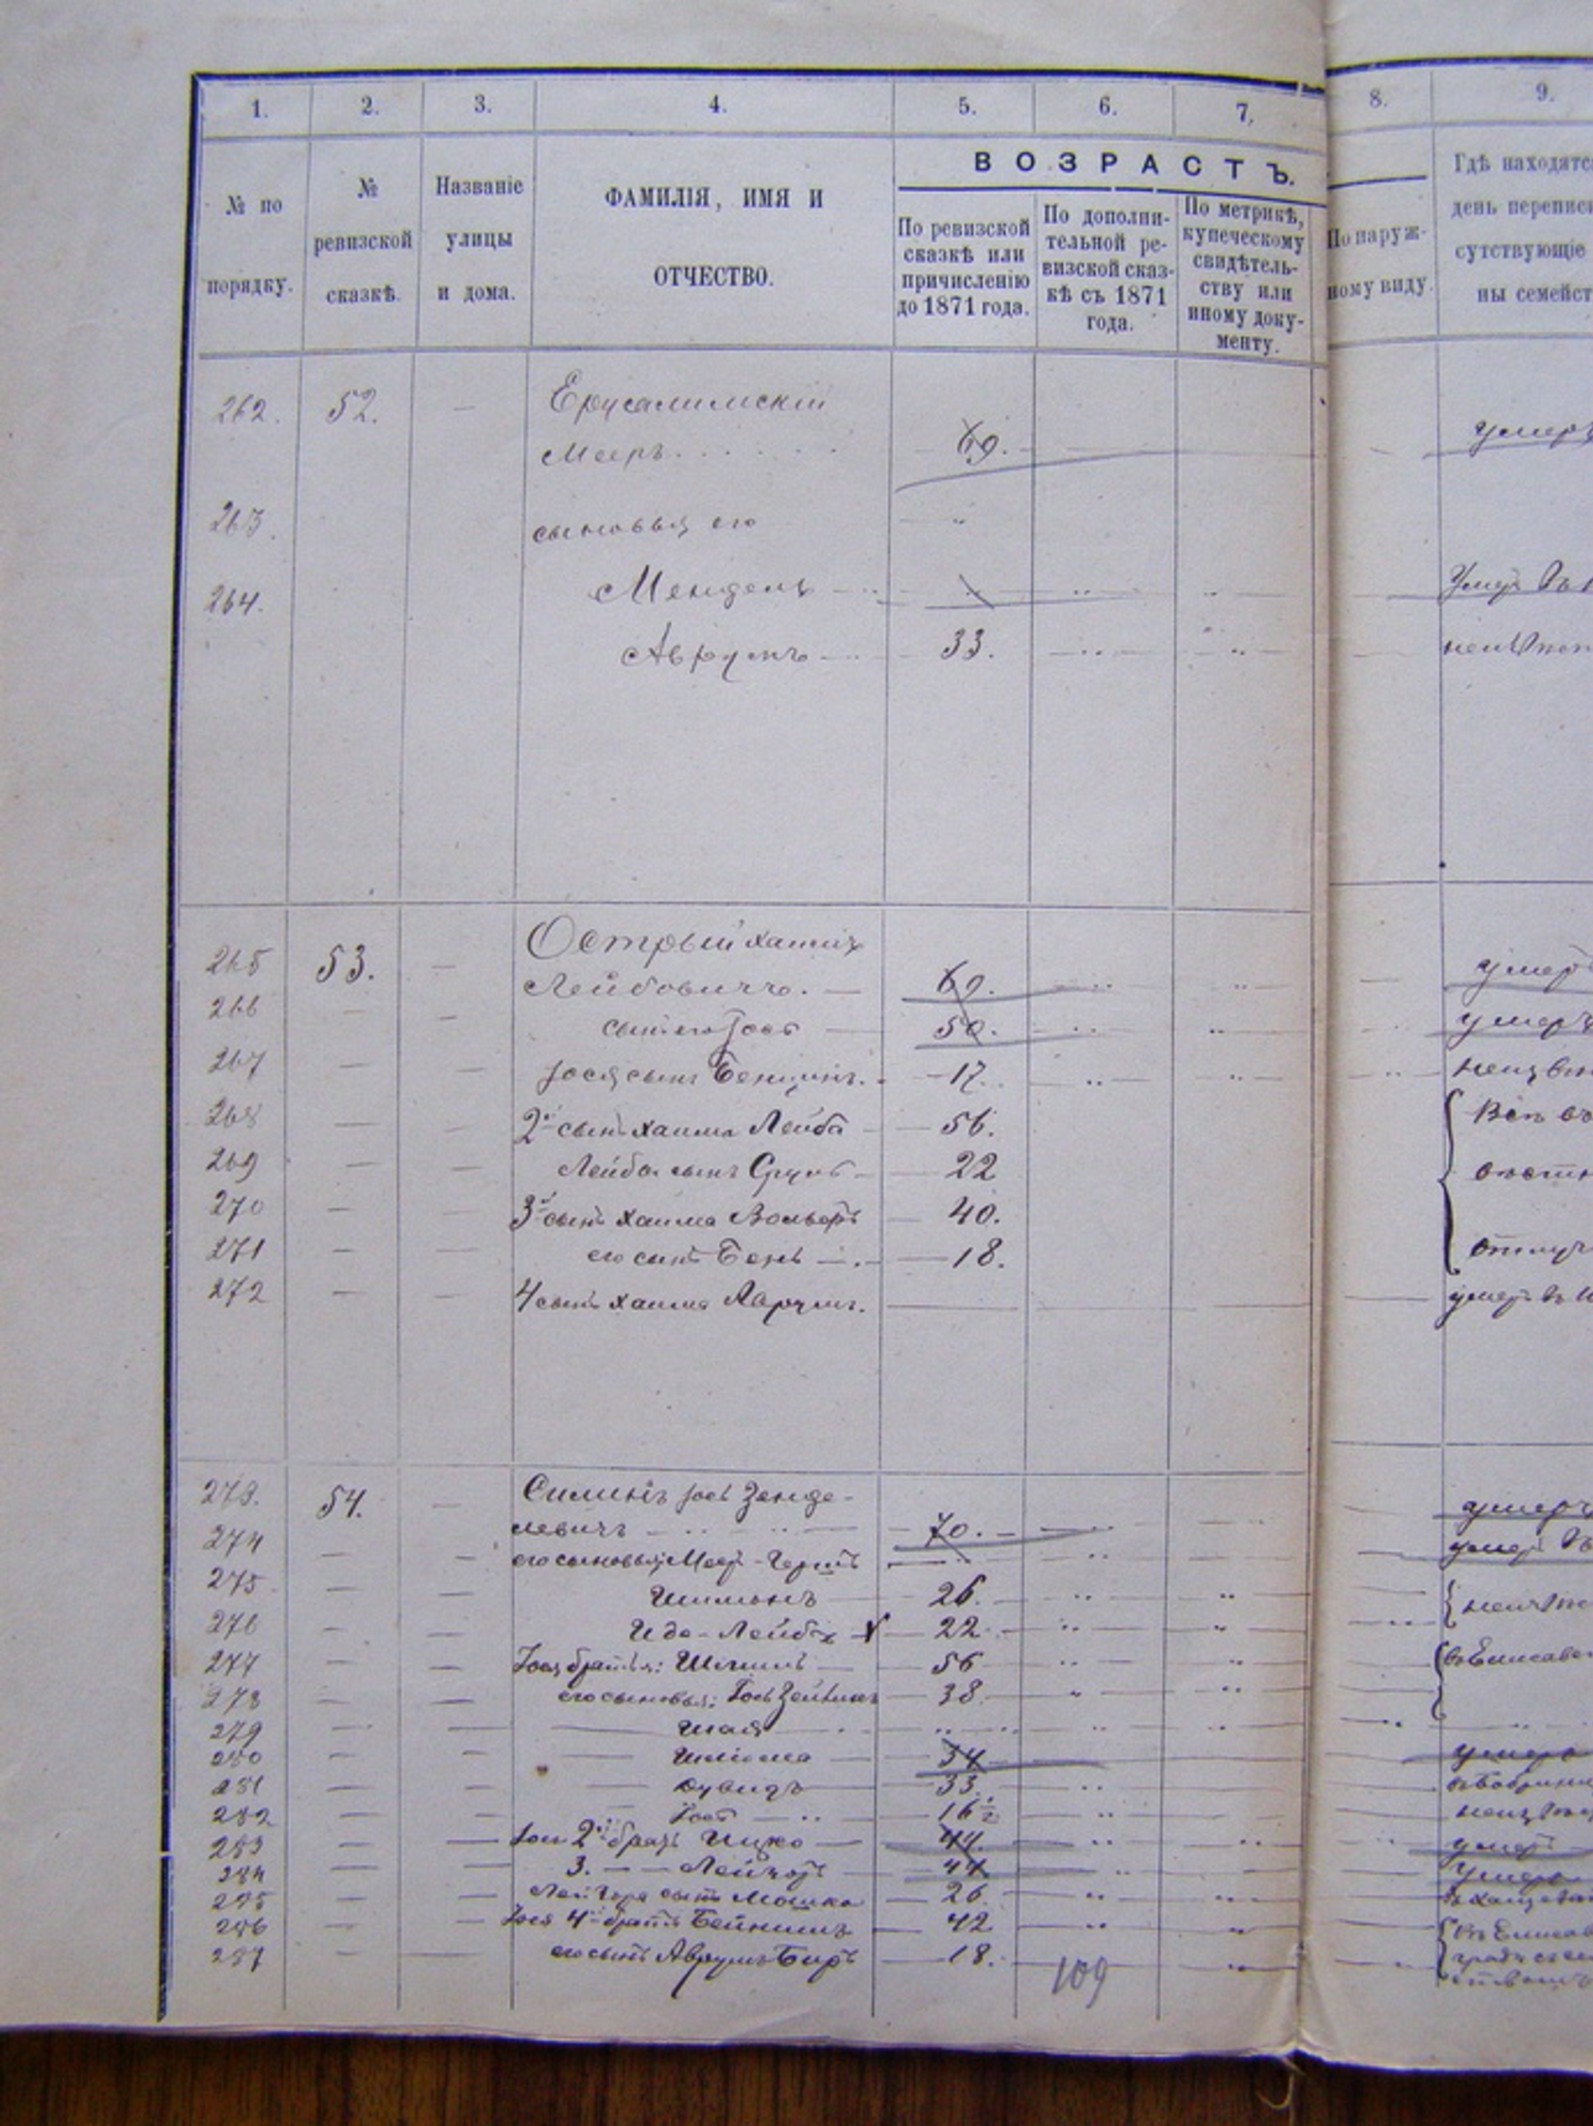 1. 2. 3. 4. 5. 6. 7. 8. 9.
№ по порядку.
№ ревизской сказкѣ.
Названіе улицы и дома.
ФАМИЛІЯ, ИМЯ И
ОТЧЕСТВО.
ВОЗРАСТЪ.
По ревизской сказкѣ или причисленію до 1871 года.
По дополни-
тельной ре-
визской сказ-
кѣ съ 1871
года.
По метрикѣ,
купеческому
свидѣтель-
ству или
иному доку-
менту.
По наруж-
ному виду.
Гдѣ находятс
день переписи
сутствующіе
ны семейст
262. 52. — Ерусалимскій
Мееръ 69. умеръ
263. сыновья его
264. Мендель Умеръ въ
Аврумъ 33.
265 53. — Острый Хаимъ
Лейбовичъ. — 69. умеръ
266 — — сынъ его Іось — 50. умеръ
267 — — Іося сынъ Бенціонъ. 17.
268 — — 2й сынъ Хаима Лейба 56. Всѣ въ
269 — — Лейба сынъ Сруль 22
270 — — 3й сынъ Хаима Вольфъ 40.
271 — — его сынъ Бень 18.
272 — — 4 сынъ Хаима Аврумъ. умеръ въ
273. 54. — Іось Зенде-
левичъ 70. умеръ
274 — — его сыновья: Меер- умеръ въ
275 — — Шимонъ 26.
276 — — Ида-Лейба 22
277 — — Іося братья: Шмиль 56
278 — — его сыновья: Іось 38
279 — — Шая
280 — — Шлиома 34 умеръ
281 — — Дувидъ 33.
282 Іось 16½
283 — Іося 2й братъ Ицко — 44. умеръ
284 — — 3. — — 44 умеръ
285 — — сынъ Мошко 26
286 — — Іося 4й братъ Бейнишъ 42
287 — — его сынъ Аврумъ Беръ 18.
109